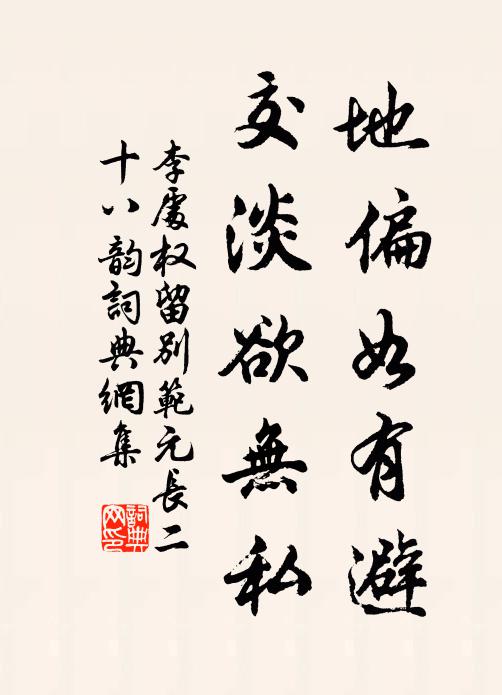 地偏如有避
交淡欲無私
李處权留别範元長二
十八韵詞典網集
詞典
网印